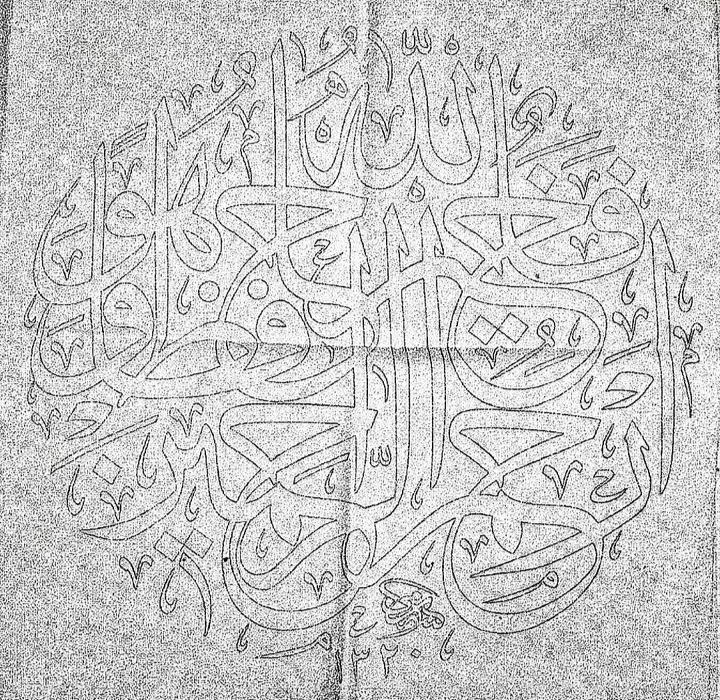 فالله خير حافظا وهو ارحم الراحمين
١٣٢٠